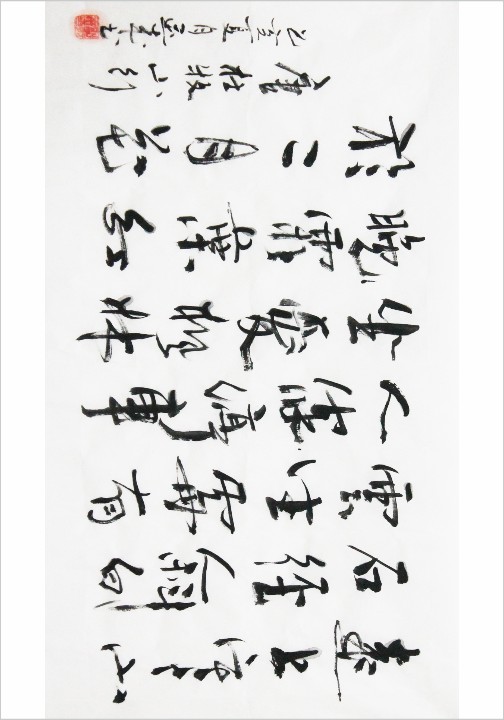 遠上寒山
石径斜白
雲生處有
人家停車
坐爱楓林
晚霜葉红
於二月花
唐杜牧山行
夏月书